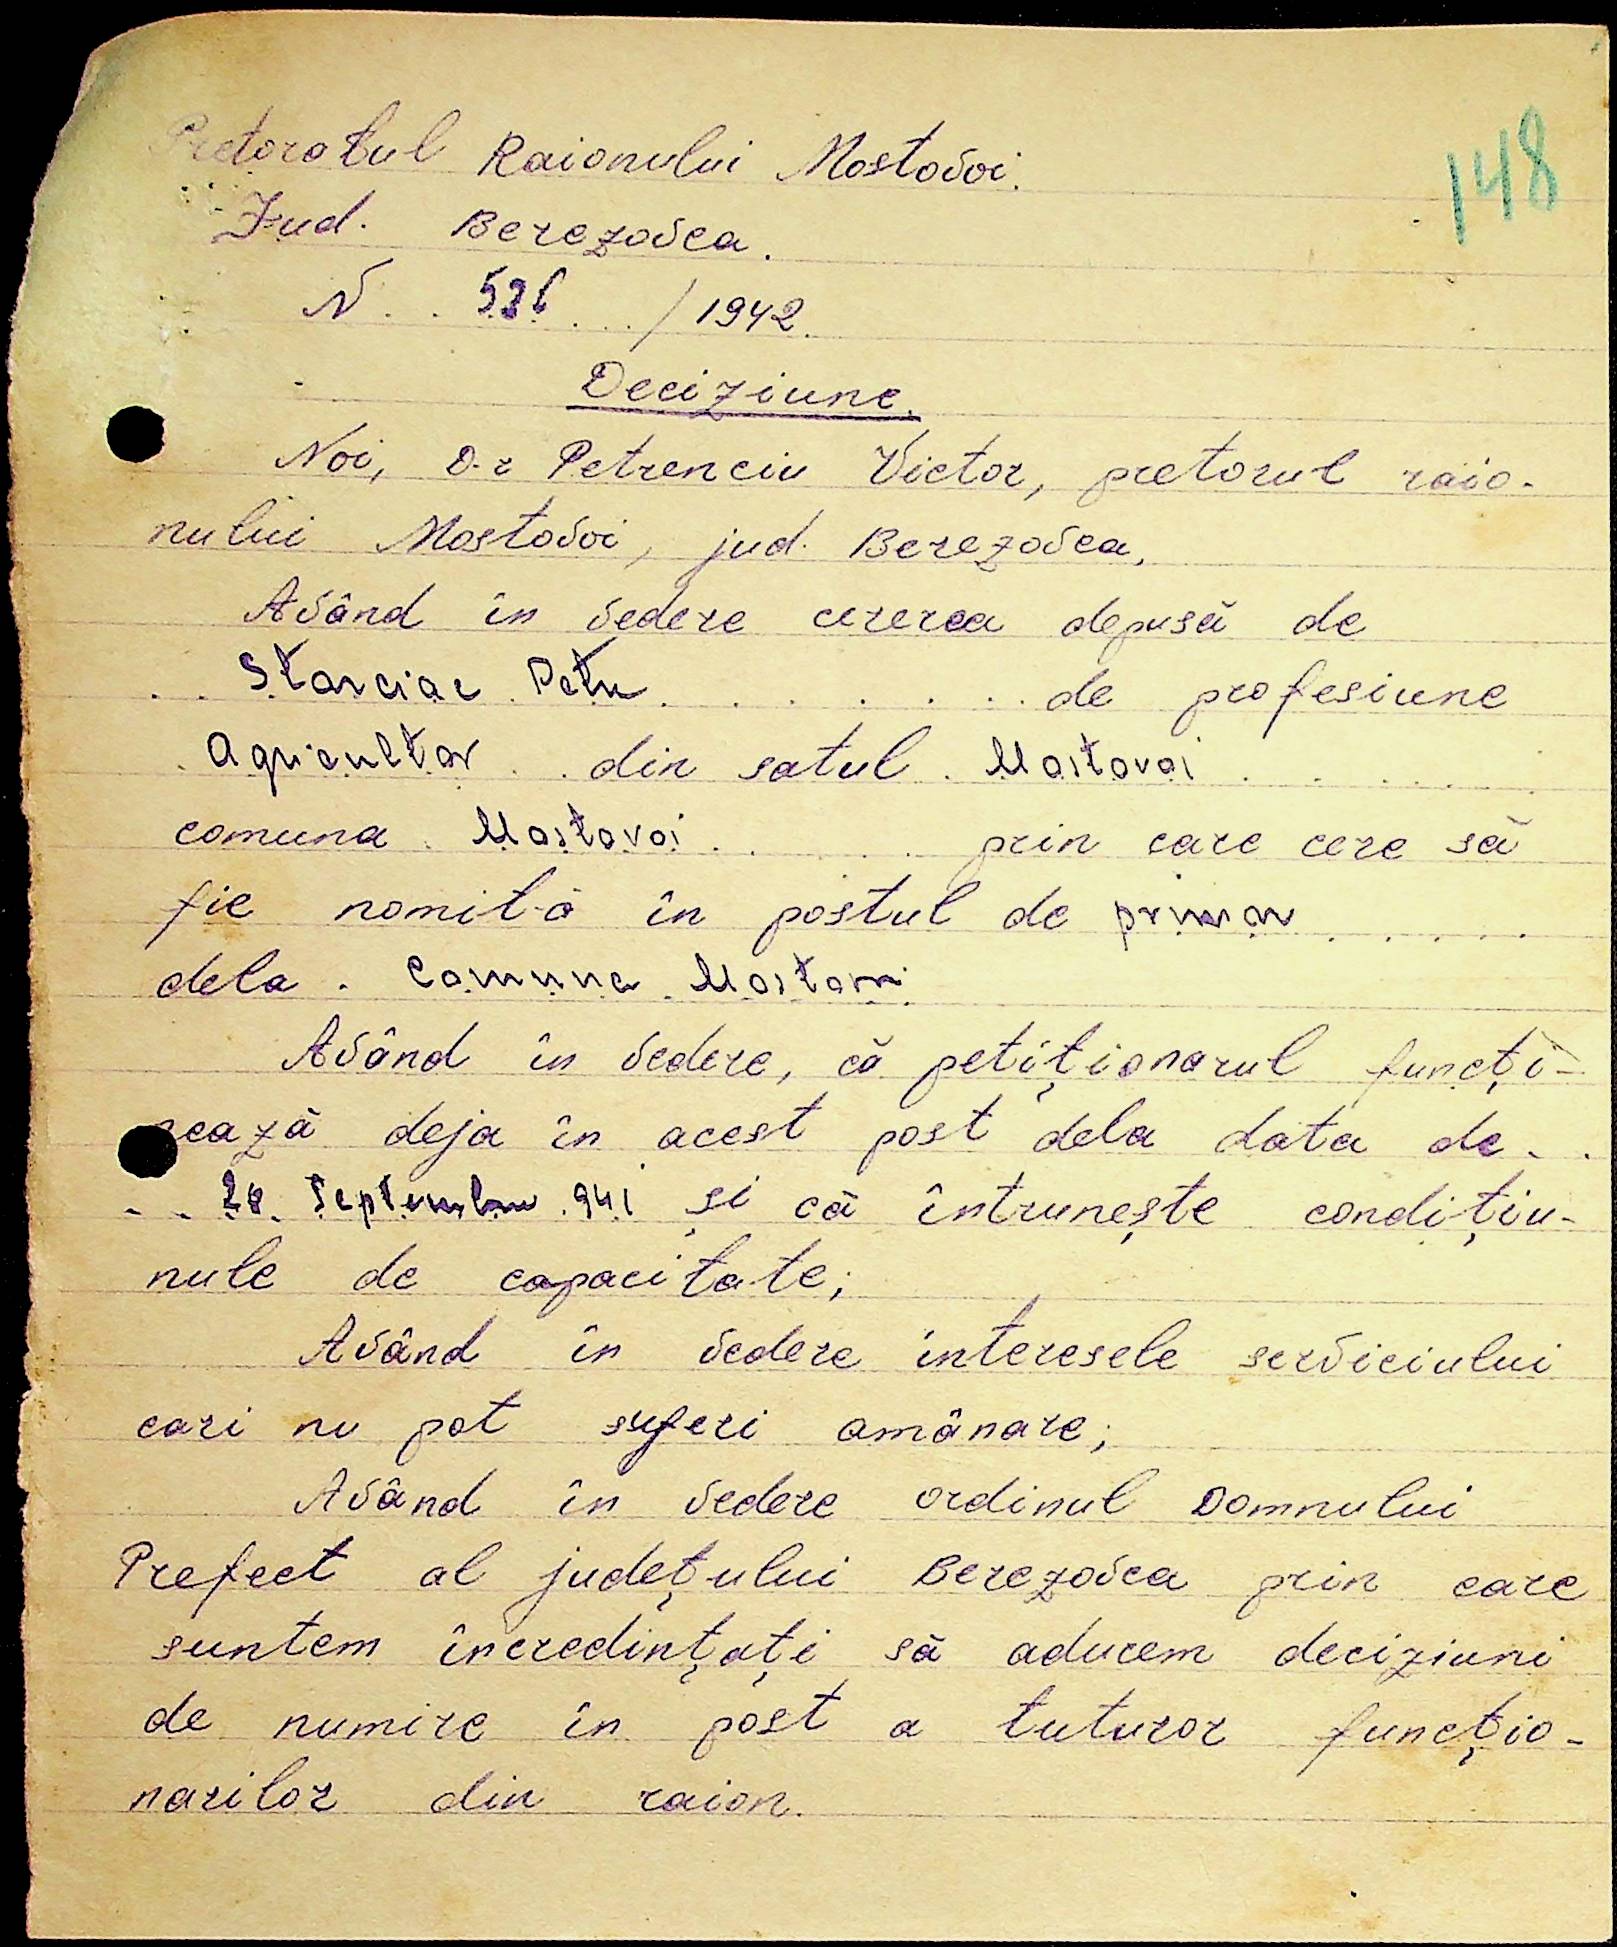 Pretoratul Raionului Mostovoi.
148
Jud. Berezovca.
N . . 526 . . . / 1942.
Deciziune.
Noi, D-r Petrenciu Victor, pretorul raio-
nului Mostovoi, jud. Berezovca,
Având în vedere cererea depusă de
. . Starciac Petru . . . . . . de profesiune
. Agricultor . . din satul . Mostovoi . . . . .
comuna . Mostovoi . . . . prin care cere să
fie nomit-ă în postul de primar . . . . .
dela . Comuna Mostovoi
Având în vedere, că petiţionarul funcţi-
nează deja în acest post dela data de . .
. . 28. Septembrie 941 şi că întruneşte condiţiu-
nule de capacitate;
Având în vedere interesele serviciului
cari nu pot suferi amânare;
Având în vedere ordinul Domnului
Prefect al judeţului Berezovca prin care
suntem încredinţaţi să aducem deciziuni
de numire în post a tuturor funcţio-
narilor din raion.